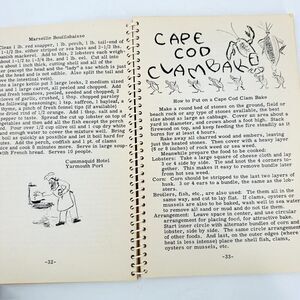 Marseille Bouillabaisse
Clean 1 lb. red snapper, 1 lb. perch, 1 tail-end of cod
1-1/2 lb. either striped or sea bass and 2-1/2 lbs.
Spanish mackerel. Add to this, 2 lobsters each weigh-
about 1-1/2 to 1-3/4 lbs. and cut all in 1-1/2 lb.
(except for the head and the "lady" is use which is just
the head and is not edible. Also split the tail and
the intestinal vein)
into a large kettle put 3 large leeks, 2 medium sized
and 1 large carrot, all peeled and chopped. Add
fresh tomatoes, peeled and seeded, 2 chopped
2 cloves of garlic, crushed and 1/4 cup. chopped parsley
the following seasonings: 1 tsp. saffron, 1 bayleaf,
a pinch of fresh fennel (if available)
pepper to taste. Spread the cut up lobster on top of
vegetables and then add all the fish except the perch
cod. Pour over 1/2 cup olive oil and 1 cup dry white
and enough water to cover the mixture well. Bring
as quickly as possible and let it boil hard for
Add the perch, codfish and 1 pt. of clams
juice and cook 5 minutes more. Serve in large soup-
with French bread. Serves 8.
Cummaquid Hotel
Yarmouth Port
-32-
CAPE
COD
CLAMBAKE
How to Put on a Cape Cod Clam Bake
Make a round bed of stones on the ground, field or
beach rock or any type of stones available, the best
size about as large as cabbage. Cover an area about 5
feet in diameter, and covers about a foot high. Start a
firewood on top, and keep feeding the fire steadily as it
burns for at least 4 hours.
Rake away all unburned wood and embers, leaving
just the heated stones. Then cover with a heavy layer
(6 or 8 inches) of rock weed or sea weed.
Meanwhile, prepare the food to be cooked:
Lobsters: Take a large square of cheese cloth and lay
3 or 4 side by side. Tie and knot the 4 corners to-
gether. This makes it easy to remove bundles later
from hot sea weed.
Corn: Corn should be stripped to the last two layers of
husk. 3 or 4 ears to a bundle, the same as the lob-
sters.
Broilers, fish, etc., are also used: Tie them all in the
same way, and cut to lay flat. If clams, oysters or
mussels are also to be baked, wash well in sea water
to remove all sand or mud and do not tie them.
Arrangement: Leave space in center, and use circular
arrangement for placing food, for attractive bake.
Start inner circle with alternate bundles of corn and
lobster, side by side. The same circle arrangement
of other foods. And last, on the outer edges (where
heat is less intense) place the shell fish, clams,
oysters or mussels, etc.
-33-